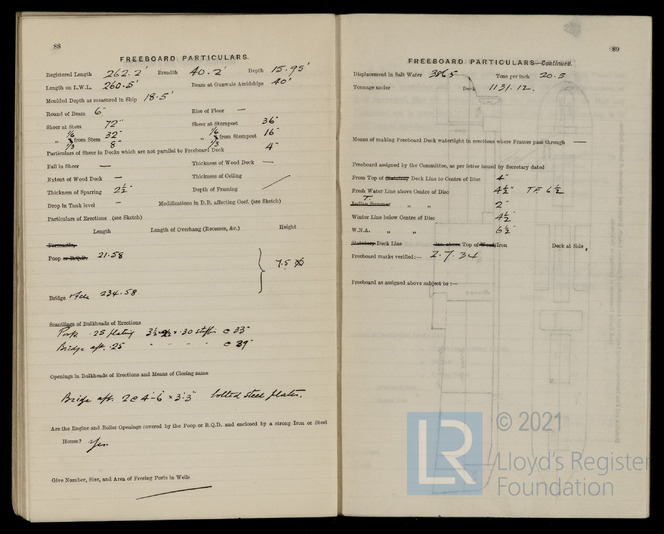 88
FREEBOARD PARTICULARS.
Registered Length 262.2' Breadth 40.2' Depth 15.95'
Length on L.W.L. 260.5' Beam at Gunwale Amidships 40'
Moulded Depth as measured in Ship 18.5'
Round of Beam 6" Rise of Floor —
Sheer at Stem 72" Sheer at Sternpost 36"
" 1/6 from Stem 32" " 1/6 from Sternpost 16"
1/3 8" 1/3 4"
Particulars of Sheer in Decks which are not parallel to Freeboard Deck
Fall in Sheer — Thickness of Wood Deck —
Extent of Wood Deck — Thickness of Ceiling
Thickness of Sparring 2½" Depth of Framing
Drop in Tank level — Modifications in D.B. affecting Coef. (see Sketch)
Particulars of Erections (see Sketch)
Length Length of Overhang (Recesses, &c.) Height
Forecastle,
Poop or R.Q.D. 21.58
7.5
Bridge 234.58
Scantlings of Bulkheads of Erections
Poop .25 plating .30 stiffrs @ 33"
Bridge aft. .25 " " " @ 29"
Openings in Bulkheads of Erections and Means of Closing same
Bridge aft. 2 @ 4'-6" × 3'-3" bolted steel plates.
Are the Engine and Boiler Openings covered by the Poop or R.Q.D. and enclosed by a strong Iron or Steel
House? Yes
Give Number, Size, and Area of Freeing Ports in Wells
89
FREEBOARD PARTICULARS—Continued.
Displacement in Salt Water 3865 Tons per inch 20.3
Tonnage under Deck 1131.12.
Means of making Freeboard Deck watertight in erections where Frames pass through —
Freeboard assigned by the Committee, as per letter issued by Secretary dated
From Top of Statutory Deck Line to Centre of Disc 4"
Fresh Water Line above Centre of Disc 4½" T.F. 6½
T.
Indian Summer " " 2"
Winter Line below Centre of Disc 4½
W.N.A. " " 6½"
Statutory Deck Line above Top of Wood Iron Deck at Side.
Freeboard marks verified:— 2.7.34
Freeboard as assigned above subject to :—
LR
© 2021
Lloyd's Register
Foundation